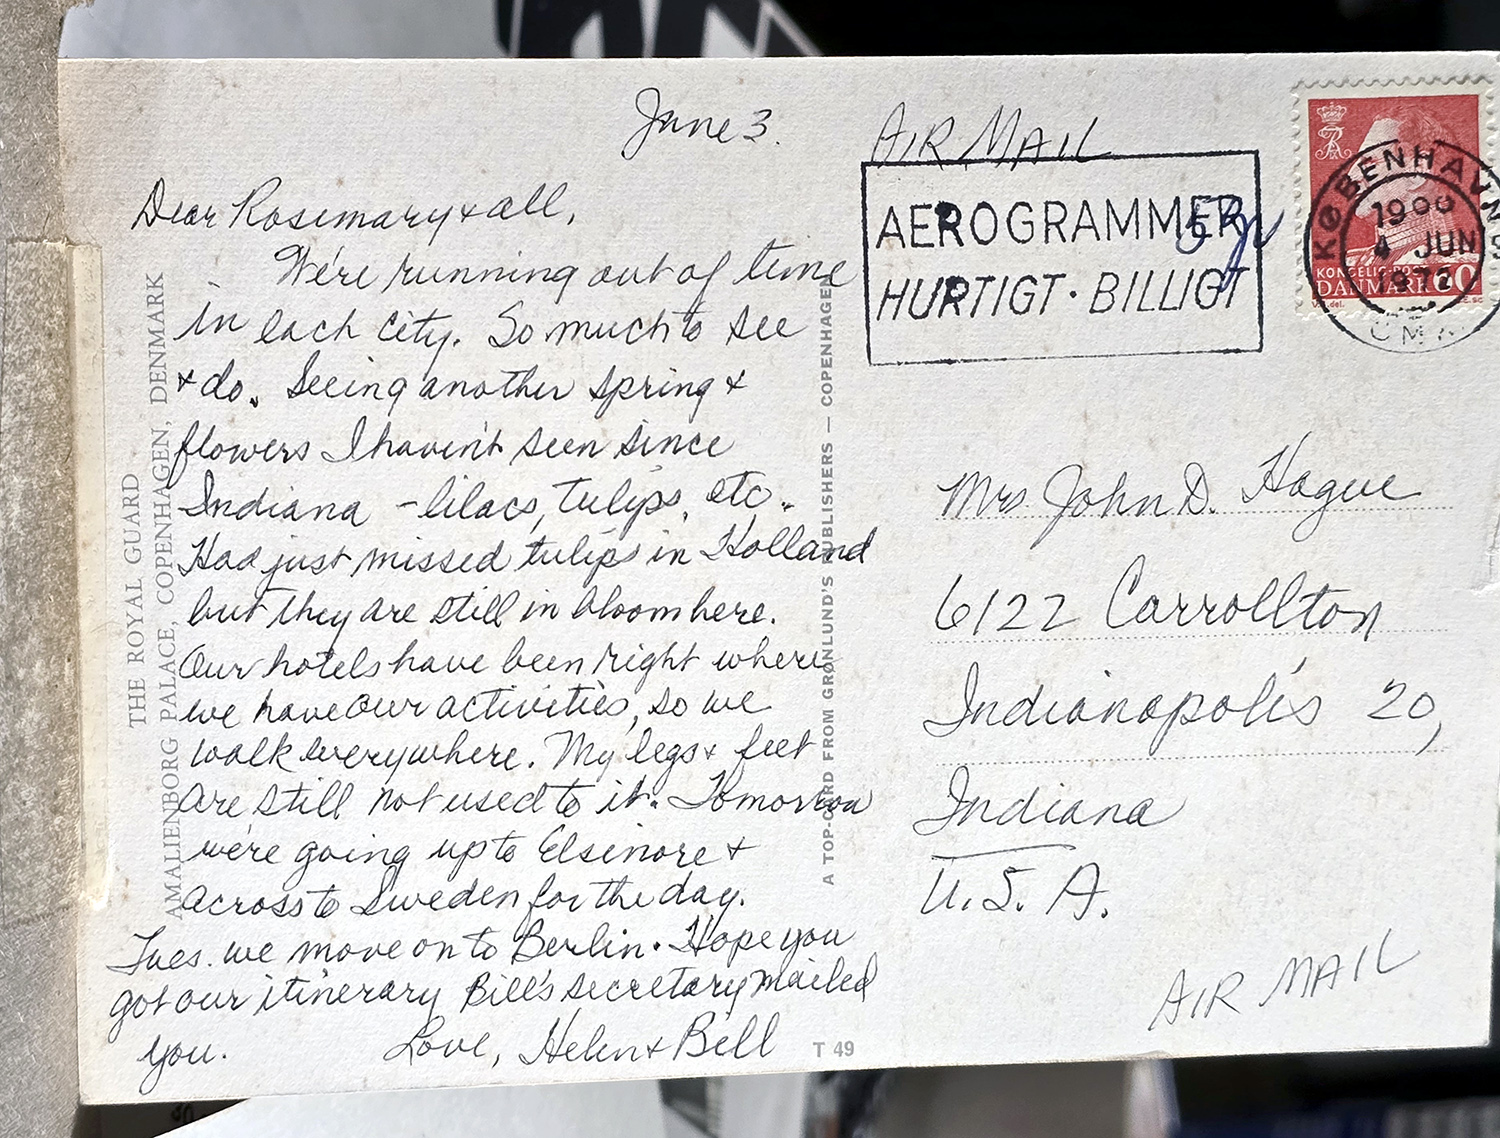 June 3.
Dear Rosemary & all,
We're running out of time
in each city. So much to see
& do. Seeing another spring &
flowers I haven't seen since
Indiana - lilacs, tulips, etc.
Had just missed tulips in Holland
but they are still in bloom here.
Our hotels have been right where
we have our activities, so we
walk everywhere. My legs & feet
are still not used to it. Tomorrow
we're going up to Elsinore &
across to Sweden for the day.
Tues. we move on to Berlin. Hope you
got our itinerary Bill's secretary mailed
you. Love, Helen & Bill
THE ROYAL GUARD
AMALIENBORG PALACE, COPENHAGEN, DENMARK
A TOP-CARD FROM GRØNLUND'S PUBLISHERS — COPENHAGEN
T 49
AIR MAIL
AEROGRAMMER
HURTIGT · BILLIGT
KØBENHAVN
1900
4 JUN
1972
DANMARK 60
Mrs John D. Hague
6122 Carrollton
Indianapolis 20,
Indiana
U.S.A.
AIR MAIL